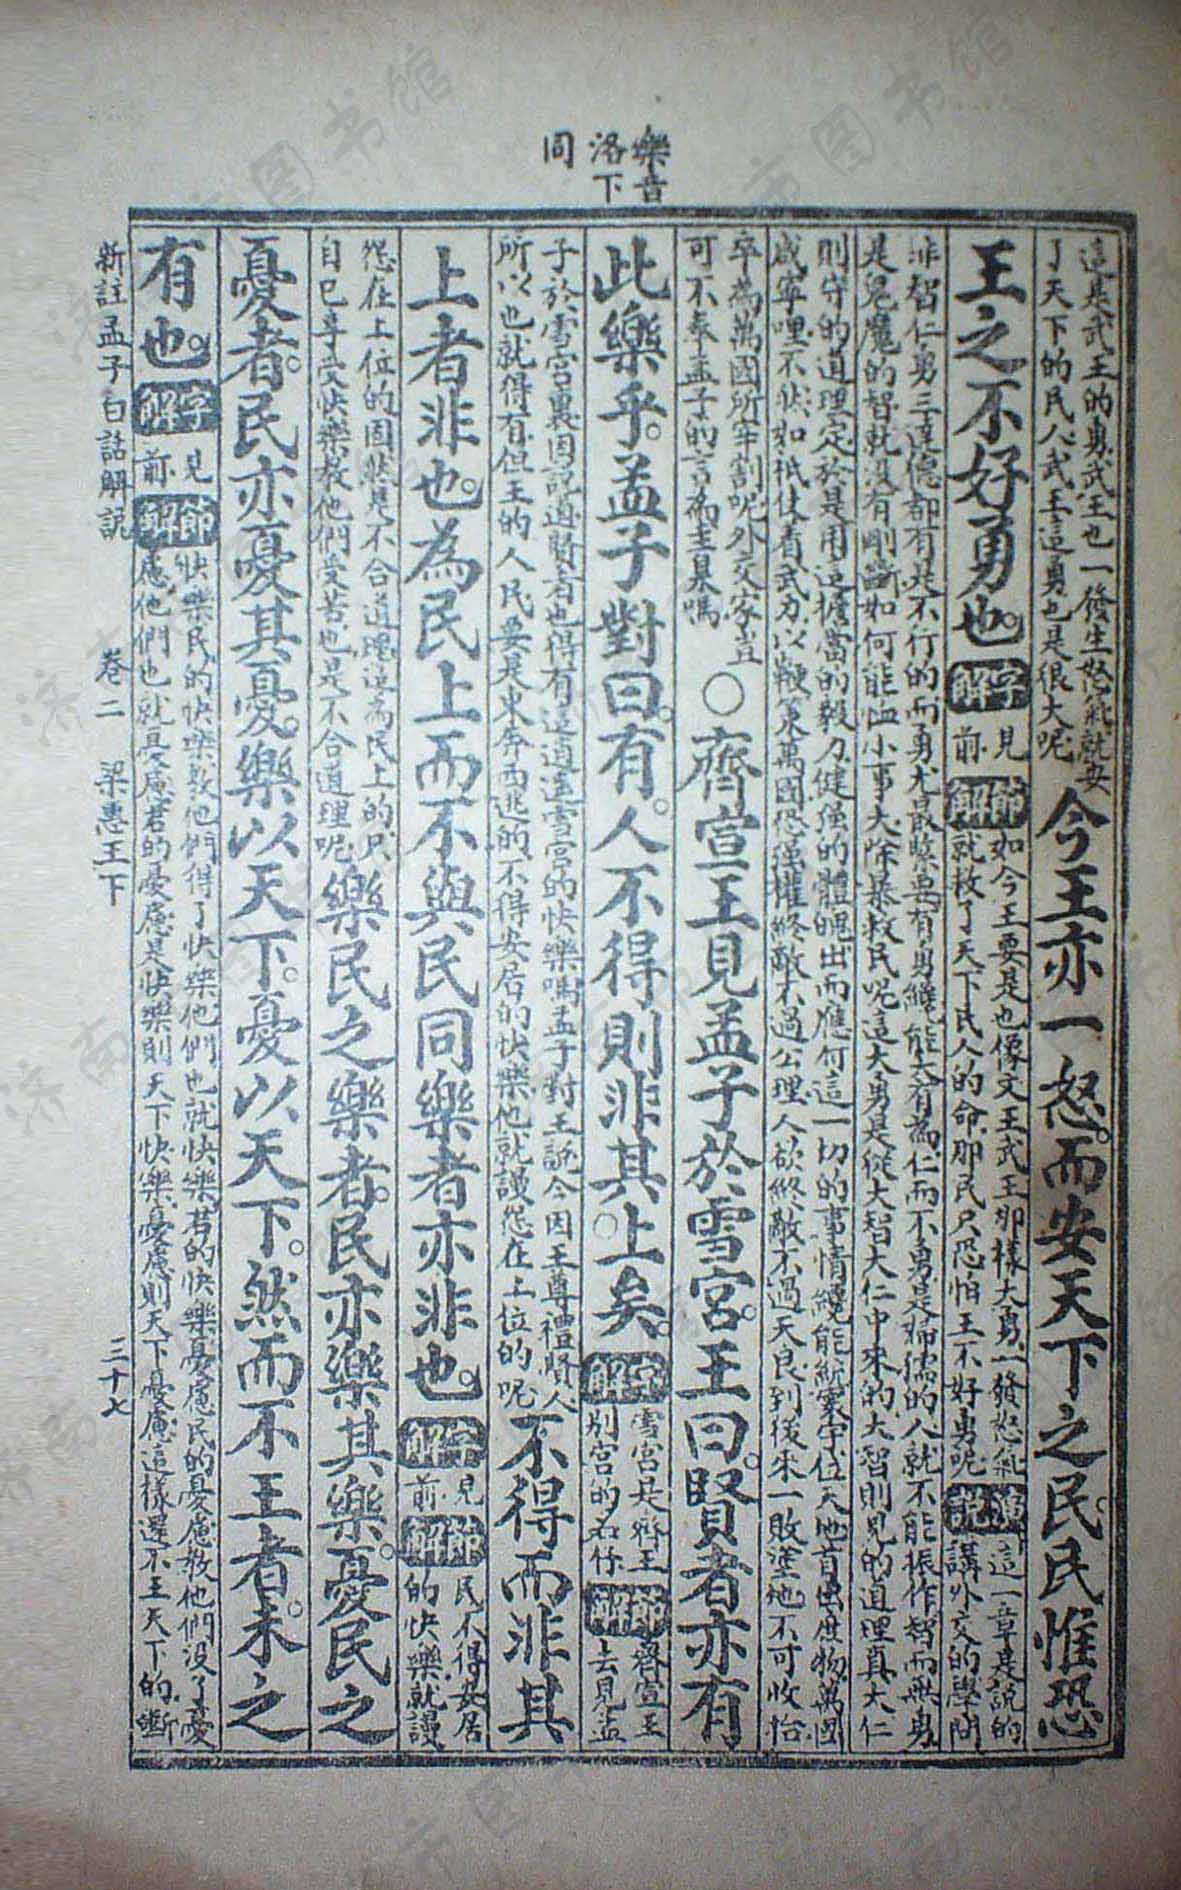 樂音
洛下
同
這是武王的勇武王也一發生怒氣就安
了天下的民人武王這勇也是很大呢
今王亦一怒而安天下之民民惟恐
王之不好勇也。
字解
見前
節解
如今王要是也像文王武王那樣大勇一發怒氣
就救了天下民人的命那民只恐怕王不好勇呢
演說
這一章是說的
講外交的學問
非智仁勇三達德都有是不行的而勇尤最緊要有勇纔能大有為仁而不勇是婦孺的人就不能振作智而無勇
是鬼魔的智就沒有剛斷如何能恤小事大除暴救民呢這大勇是從大智大仁中來的大智則見的道理真大仁
則守的道理定於是用這擔當的毅力健強的體魄出而應付這一切的事情纔能統寰宇位天地首出庶物萬國
咸寧哩不然如祇仗着武力以鞭策萬國恐強權終敵不過公理人欲終敵不過天良到後來一敗塗地不可收恰
卒為萬國所宰割呢外交家豈
可不奉孟子的言為圭臬嗎
○齊宣王見孟子於雪宮。王曰。賢者亦有
此樂乎。孟子對曰。有。人不得則非其○上矣。
字解
雪宮是齊王
別宮的名仔
節解
齊宣王
上去見孟
子於雪宮裏因說道賢者也得有這道這雪宮的快樂嗎孟子對王說今因王尊禮賢人
所以也就得有但王的人民要是東奔西逃的不得安居的快樂他就謾怨在上位的呢
不得而非其
上者非也。為民上而不與民同樂者亦非也。
字解
見前
節解
民不得安居
的快樂就謾
怨在上位的固然是不合道理這為民上的只
自己享受快樂教他們受苦也是不合道理呢
樂民之樂者。民亦樂其樂。憂民之
憂者。民亦憂其憂。樂以天下。憂以天下。然而不王者。未之
有也。
字解
見前
節解
快樂民的快樂教他們得了快樂他們也就快樂君的快樂憂慮民的憂慮教他們沒了憂
慮他們也就憂慮君的憂慮是快樂則天下快樂憂慮則天下憂慮這樣還不王天下的斷
新註孟子白話解說 卷二 梁惠王下 三十七